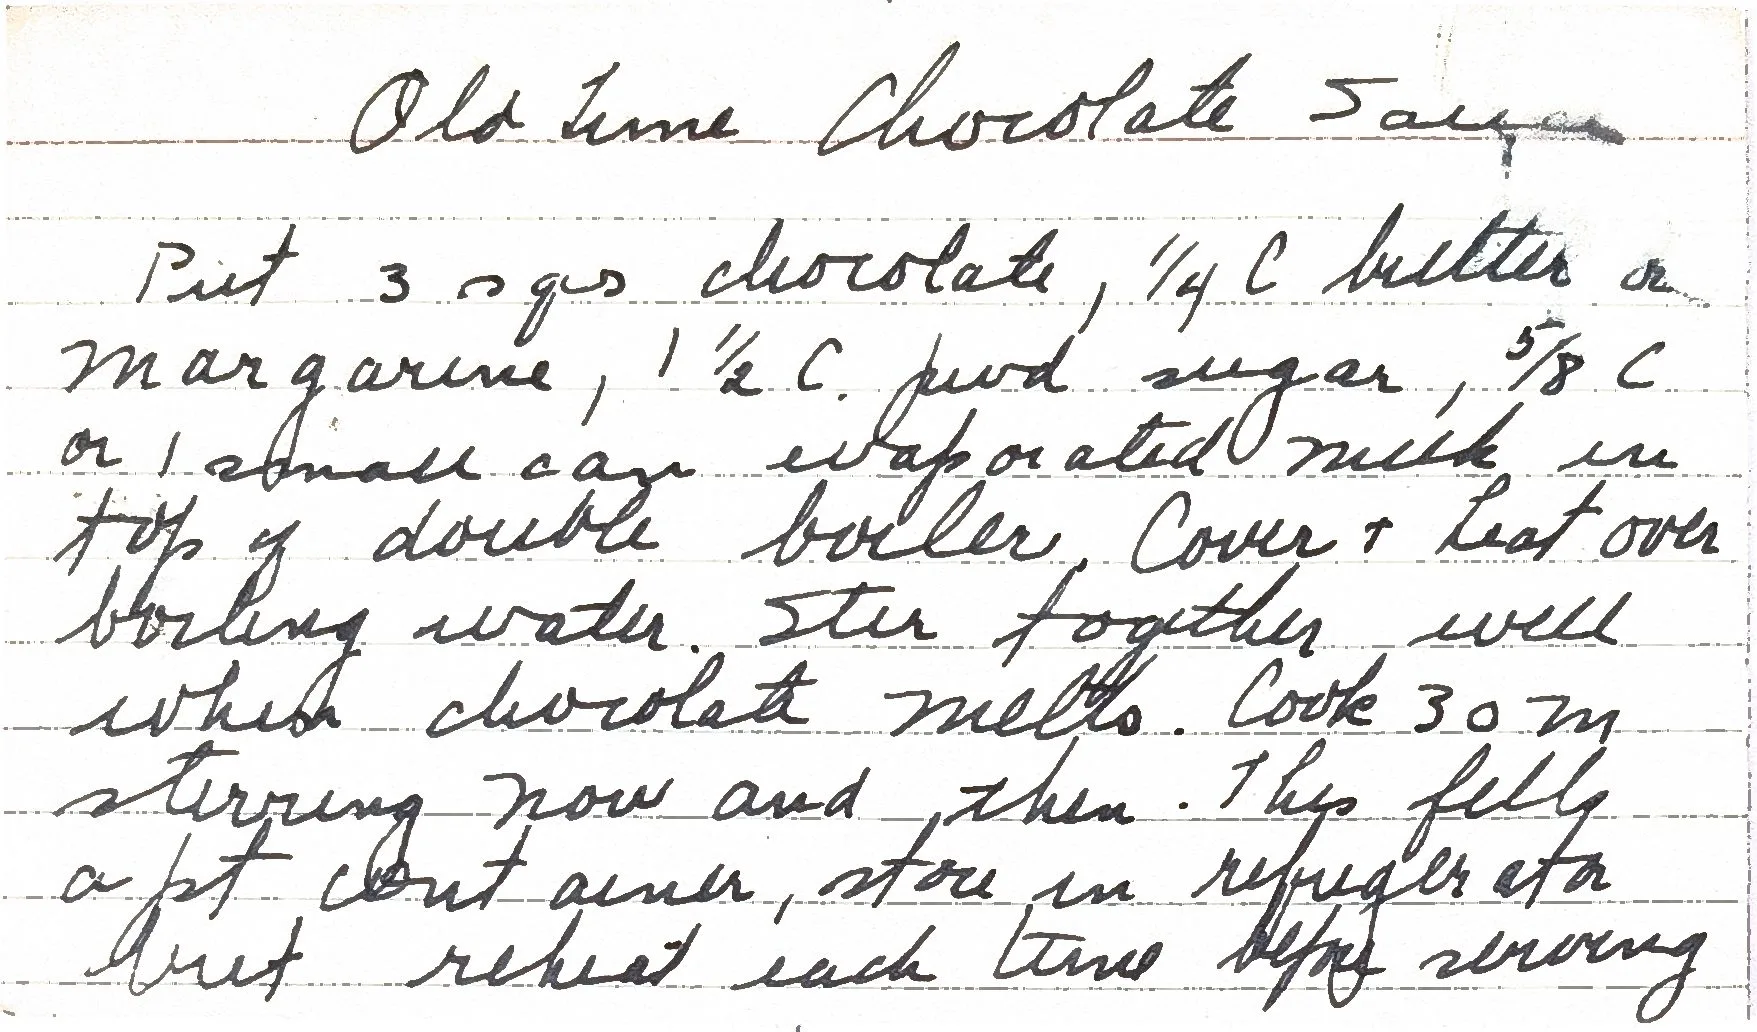 Old Time Chocolate Sauce
Put 3 sqs chocolate, 1/4 C butter or
margarine, 1 1/2 C. pwd sugar, 5/8 C
or 1 small can evaporated milk in
top of double boiler. Cover + heat over
boiling water. Stir together well
when chocolate melts. Cook 30 m
stirring now and then. This fills
a pt container, store in refrigerator
but reheat each time before serving